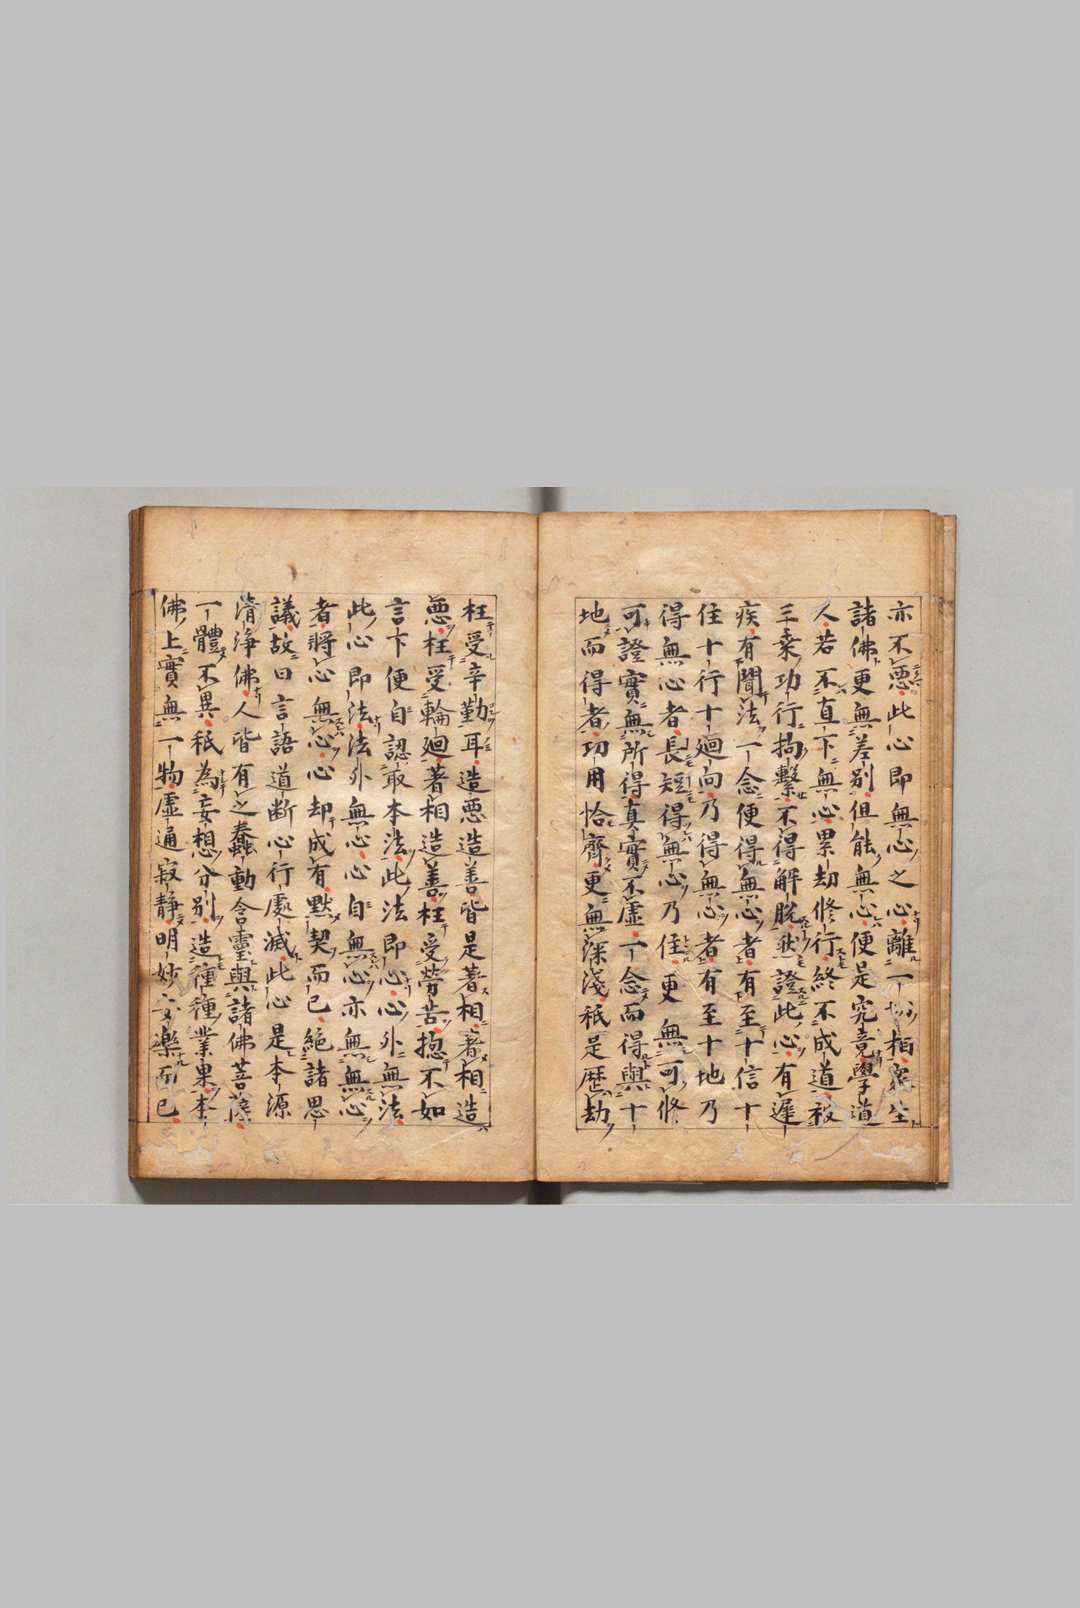 亦不惡此心即無心之心離一切相衆生
諸佛更無差別但能無心便是究竟學道
人若不直下無心累劫修行終不成道被
三乘功行拘繫不得解脫然證此心有遲
疾有聞法一念便得無心者有至十信十
住十行十廻向乃得無心者有至十地乃
得無心者長短得無心乃住更無可修
可證實無所得真實不虛一念而得與十
地而得者功用恰齊更無深淺祇是歷劫
枉受辛勤耳造惡造善皆是著相著相造
惡枉受輪廻著相造善枉受勞苦揔不如
言下便自認取本法此法即心心外無法
此心即法法外無心心自無心亦無無心
者將心無心心却成有默契而已絶諸思
議故曰言語道断心行處滅此心是本源
清淨佛人皆有之蠢動含靈與諸佛菩薩
一體不異祇為妄想分別造種種業果本
佛上實無一物虛通寂静明妙安樂而已